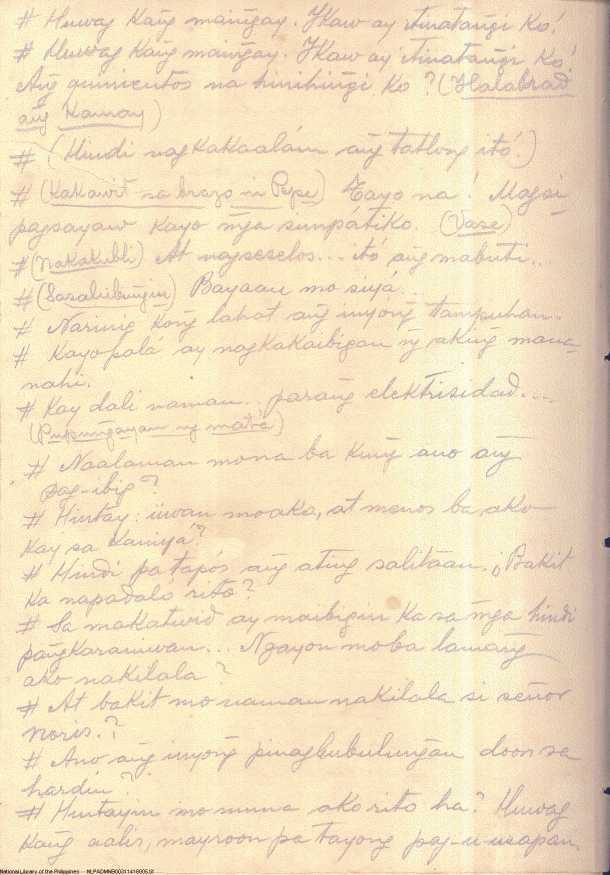 # Huwag kang maingay. Ikaw ay itinatangi ko!
# Huwag kang maingay. Ikaw ay itinatangi ko!
Ang quinientos na hinihingi ko? (Ilalabrad
ang Kamay)
# (Hindi nagkakaalám ang tatlong itó.)
# (Kakawit sa brazo ni Pepe) Tayo na! Magsi-
pagsayaw kayo mga simpátiko. (Vase)
# (Nakakubli) At nagseselos... itó ang mabuti...
# (Sasalubungin) Bayaan mo siyá...
# Narinig kong lahat ang inyong tampuhan.
# Kayo palá ay nagkakaibigan ng aking mana-
nahi.
# Kay dali naman.. parang elektrisidad...
(Pupungayan ng matá)
# Naalaman mo na ba kung ano ang
pag-ibig?
# Hintay: iiwan mo ako, at menos ba ako
kay sa kaniyá?
# Hindi pa tapós ang ating salitaan. ¿Bakit
ka napadaló rito?
# Sa makatwid ay maibigin ka sa mga hindi
pangkaraniwan... Ngayon mo ba lamang
ako nakilala?
# At bakit mo naman nakilala si señor
Noris.?
# Ano ang inyong pinagbubulungan doon sa
hardin?
# Hintayin mo muna ako rito ha? Huwag
kang aalis, mayroon pa tayong pag-uusapan.
National Library of the Philippines